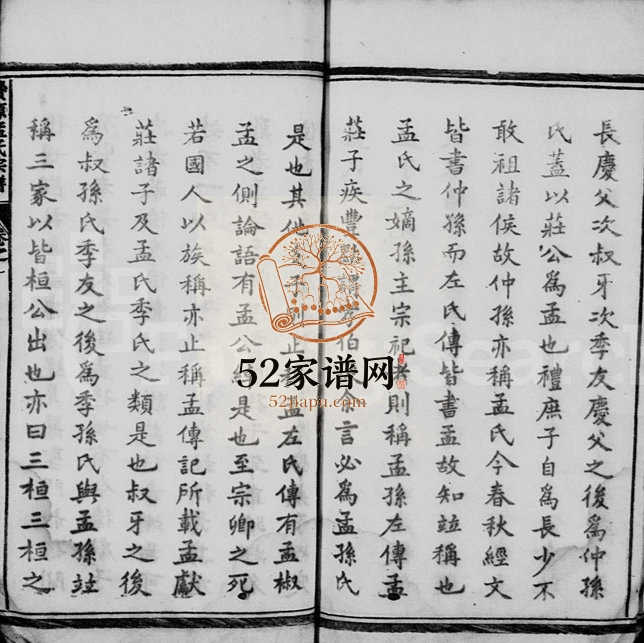 長慶父次叔牙次季友慶父之後為仲孫
氏蓋以莊公為孟也禮庶子自為長少不
敢祖諸侯故仲孫亦稱孟氏今春秋經文
皆書仲孫而左氏傳皆書孟故知竝稱也
孟氏之嫡孫主宗祀者則稱孟孫左傳孟
莊子疾豐點謂 伯 言必為孟孫氏
是也其他 子則止 孟左氏傳有孟椒
孟之側論語有孟公綽是也至宗卿之死
若國人以族稱亦止稱孟傳記所載孟獻
莊諸子及孟氏季氏之類是也叔牙之後
為叔孫氏季友之後為季孫氏與孟孫竝
稱三家以皆桓公出也亦曰三桓三桓之
孟氏宗譜
52家谱网
52jiapu.com